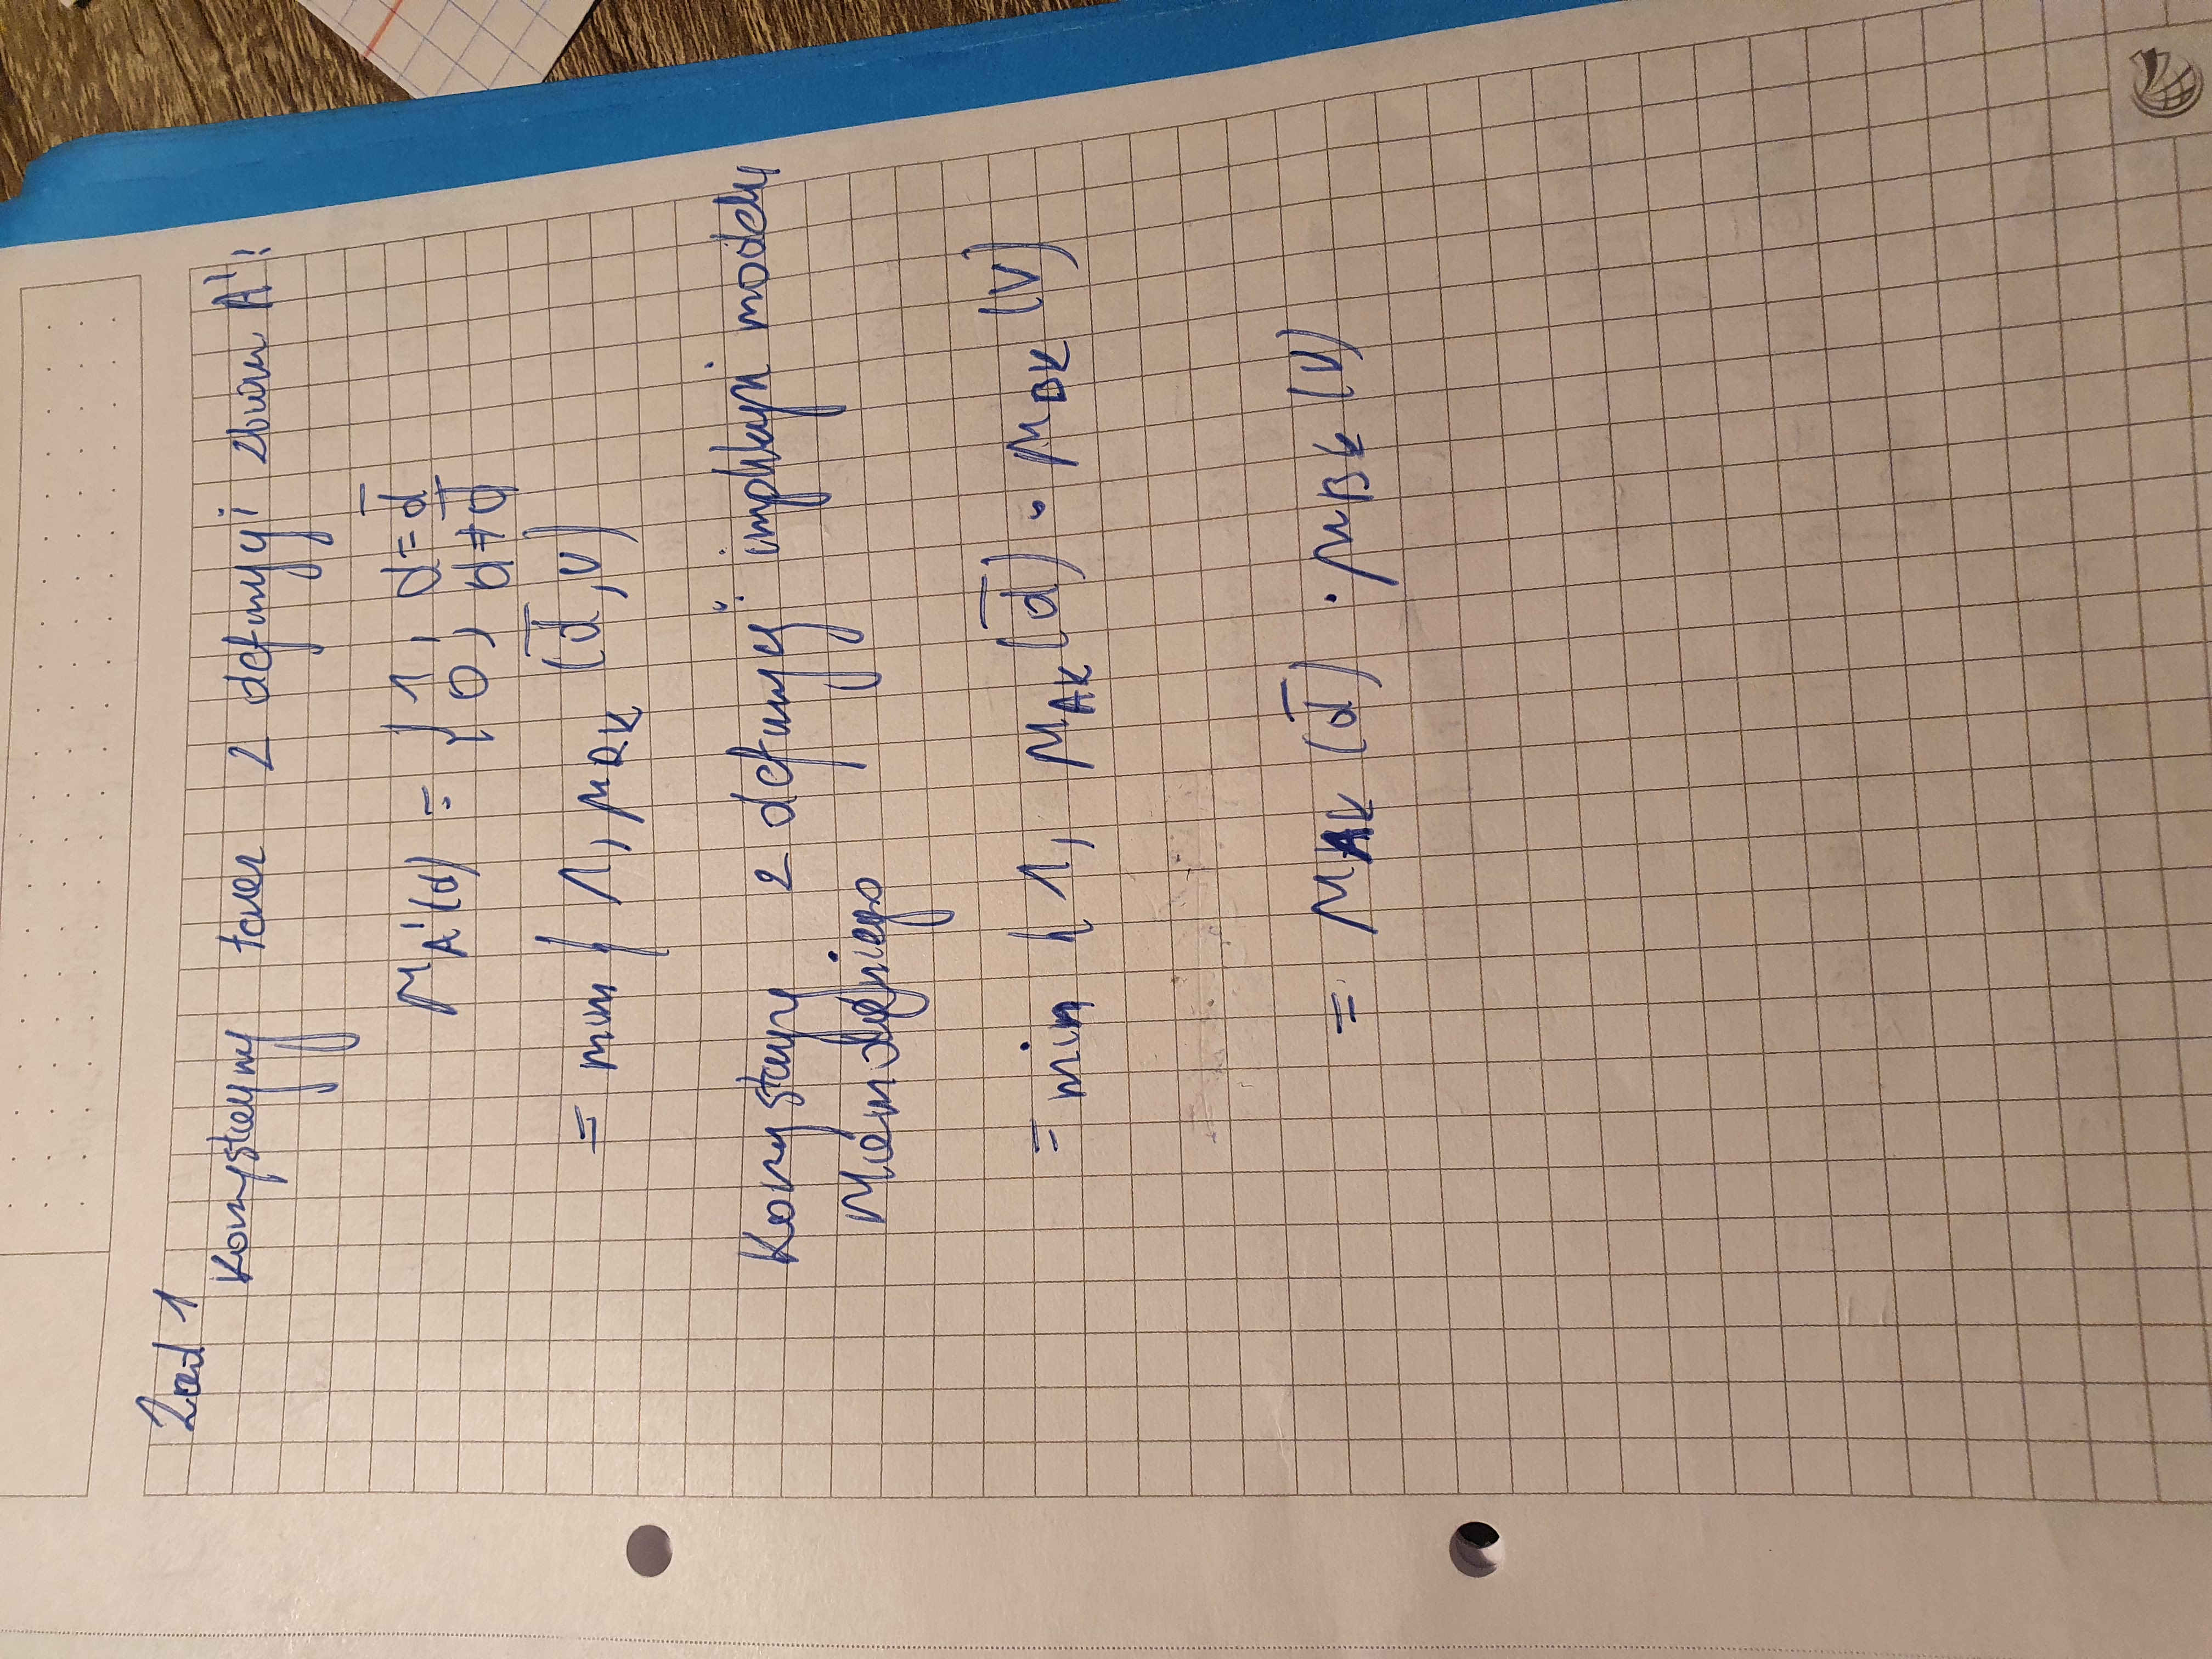 Zad 1
Korzystajmy teraz z definicji zbioru A':
μ_A'(d) = { 1, d = d̅
{ 0, d ≠ d̅
= min ( 1, μ_RK (d̅, v)
Korzystamy z definicji implikacji modelu
Mamdaniego
= min ( 1, μ_AK (d̅) · μ_BK (v)
= μ_AK (d̅) · μ_BK (v)